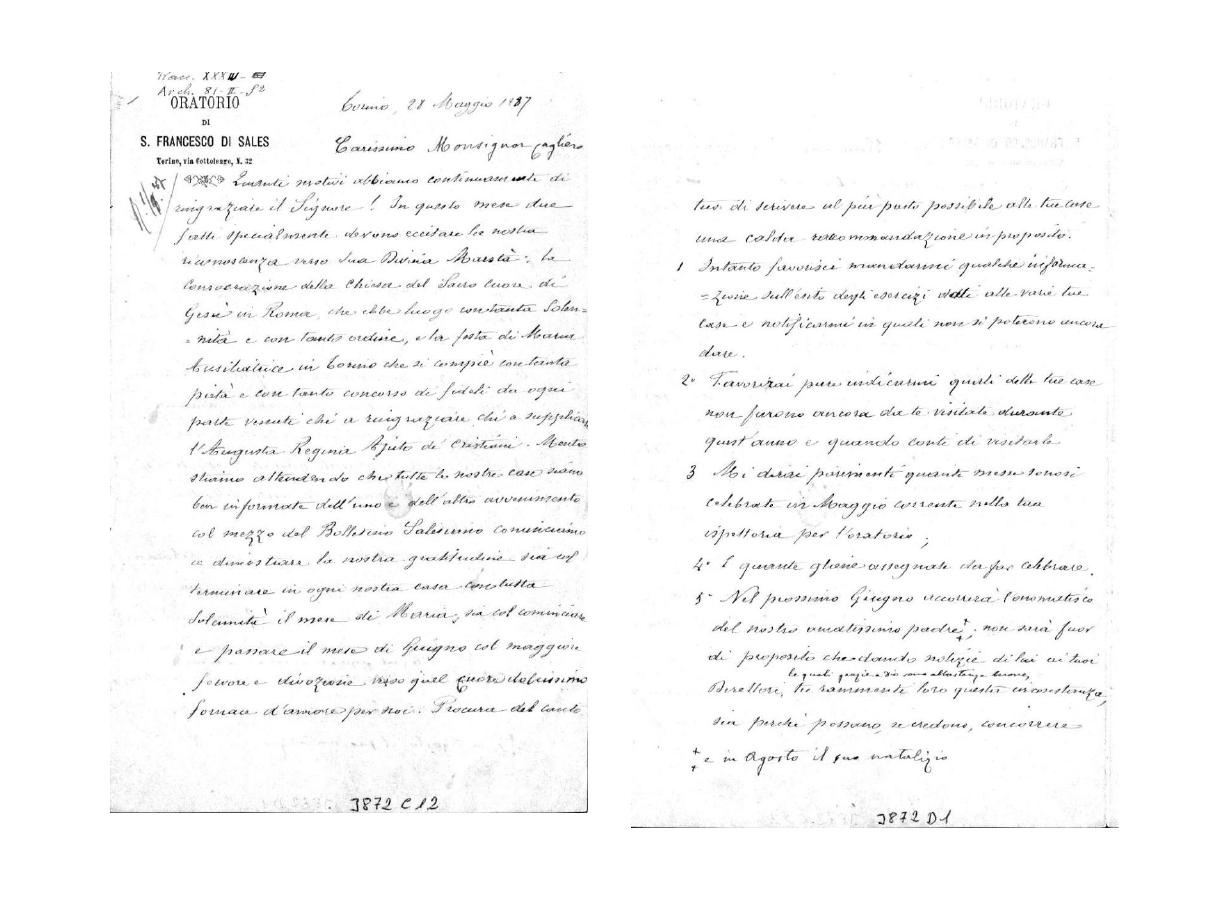 Arch. 81-II-52
ORATORIO
DI
S. FRANCESCO DI SALES
Torino, via Cottolengo, N. 32
Torino, 28 Maggio 1887
Carissimo Monsignor Cagliero
Quanti motivi abbiamo continuamente di
ringraziare il Signore! In questo mese due
fatti specialmente devono eccitare la nostra
riconoscenza verso Sua Divina Maestà: la
Consacrazione della Chiesa del Sacro Cuore di
Gesù in Roma, che ebbe luogo con tanta Solen=
=nità e con tanto ordine, e la festa di Maria
Ausiliatrice in Torino che si compiè con tanta
pietà e con tanto concorso di fedeli da ogni
parte venuti chi a ringraziare chi a supplicare
l'Augusta Regina Ajuto de' Cristiani. Mentre
stiamo attendendo che tutte le nostre case siano
ben informate dell'uno e dell'altro avvenimento
col mezzo del Bollettino Salesiano cominciamo
a dimostrare la nostra gratitudine sia col
terminare in ogni nostra casa con tutta
Solennità il mese di Maria, sia col cominciare
e passare il mese di Giugno col maggiore
fervore e divozione verso quel Cuore dolcissimo
fornace d'amore per noi. Procura dal canto
J872 C12
tuo di scrivere al più presto possibile alle tue case
una calda raccomandazione in proposito.
1 Intanto favorisci mandarmi qualche informa=
=zione sull'esito degli esercizi dati alle varie tue
case e notificarmi in quali non si poterono ancora
dare.
2° Favorirai pure indicarmi quali delle tue case
non furono ancora da te visitate durante
quest'anno e quando conti di visitarle
3 Mi dirai parimenti quante messe sonosi
celebrate in Maggio corrente nella tua
ispettoria per l'oratorio;
4° E quante gliene assegnate da far celebrare.
5° Nel prossimo Giugno occorrerà l'onomastico
del nostro amatissimo padre +; non sarà fuor
di proposito che dando notizie di lui ai tuoi
le quali grazie a Dio sono abbastanza buone,
Direttori, tu rammenti loro questa circostanza,
sia perchè possano, se credono, concorrere
+ e in Agosto il suo natalizio
J872 D1